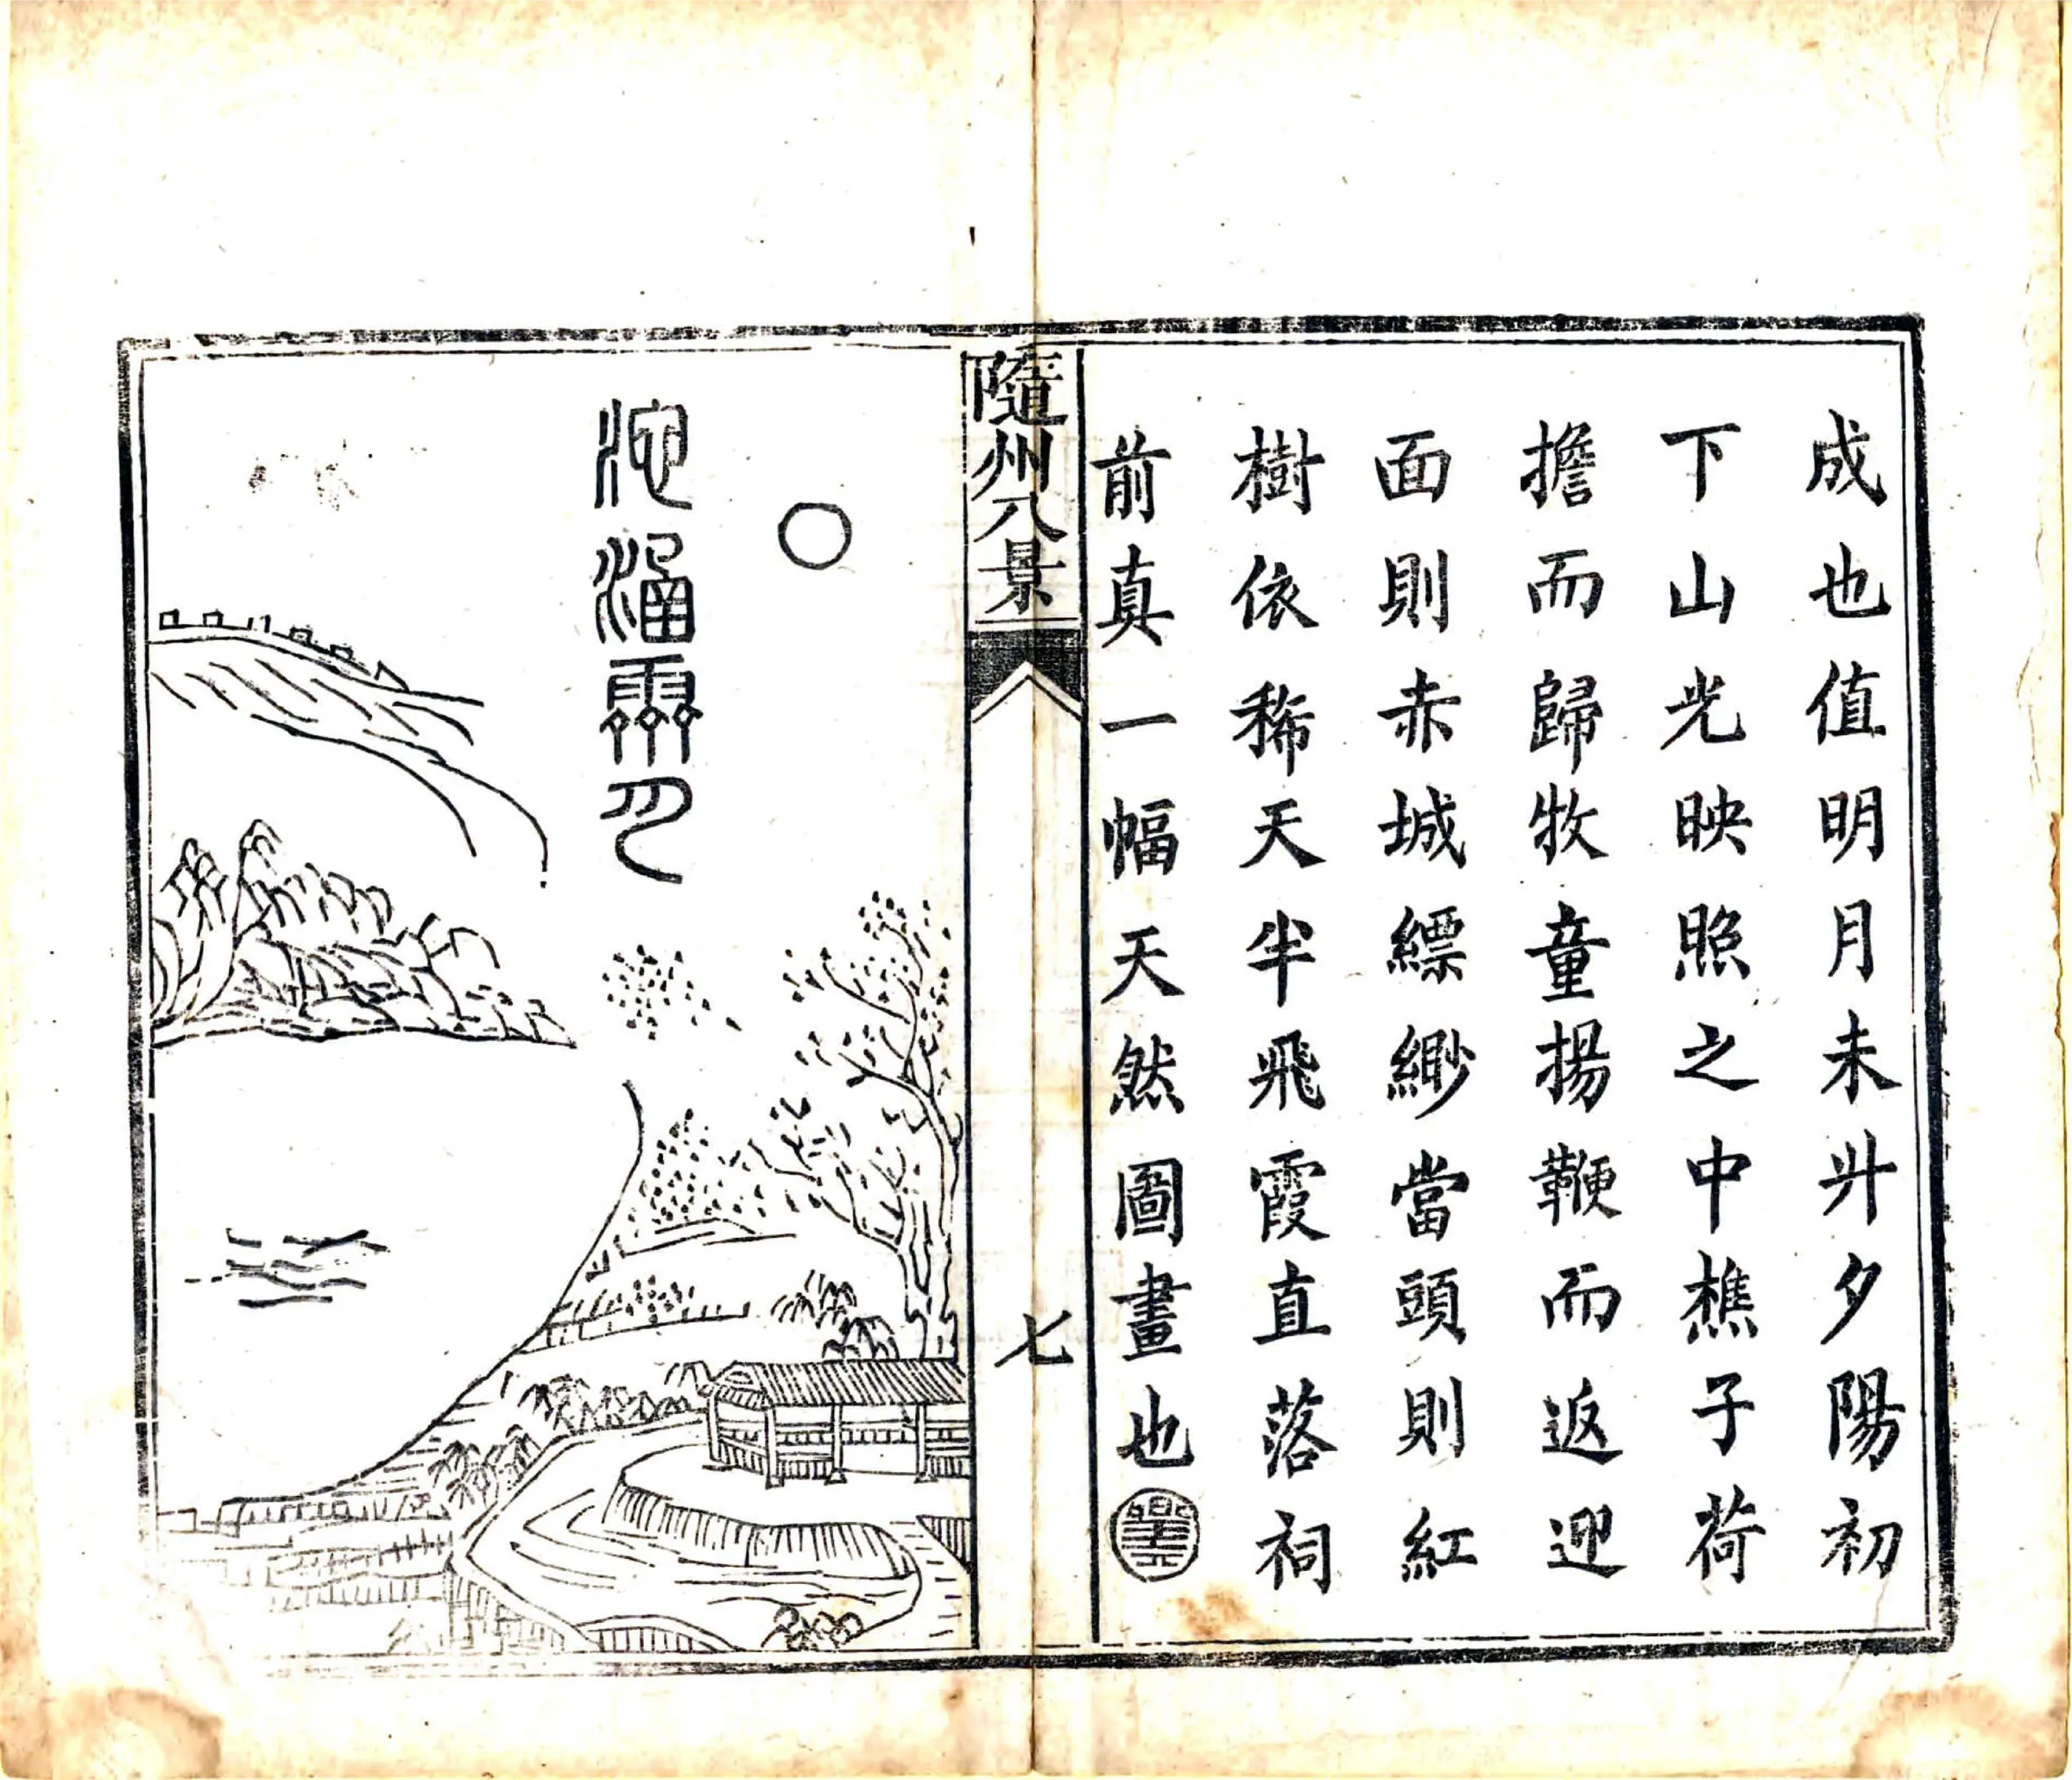 成也值明月未升夕陽初
下山光映照之中樵子荷
擔而歸牧童揚鞭而返迎
面則赤城縹緲當頭則紅
樹依稀天半飛霞直落祠
前真一幅天然圖畫也
隨州八景
七
池涵霽月